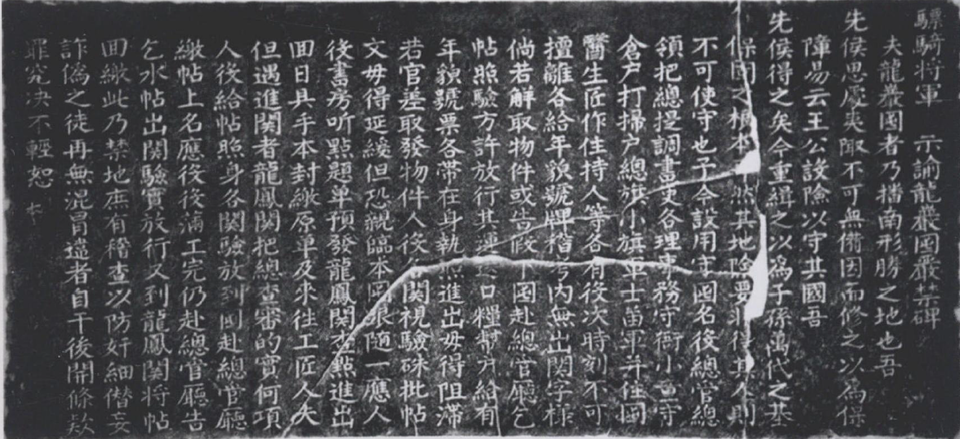 驃騎將軍　示諭龍巖囤嚴禁碑
夫龍巖囤者乃播南形勝之地也吾
先侯思處夾陬不可無備因而修之以為保
障易云王公設險以守其國吾
先侯得之矣今重緝之以為子孫萬代之基
保國之根本然其地險要非得其人則
不可使守也予今設用守囤名役總管總
領把總提調書吏各理事務守衙小童守
倉戶打掃戶總旗小旗軍士苗軍并住囤
醫生匠作住持人等各有役次時刻不可
擅離各給年貌號牌稽考內無出関字樣
倘若解取物件或告假下囤赴總管廳乞
帖照驗方許放行其口糧片給有
年貌號票各帶在身執照進出毋得阻滯
若官差取發物件人役関視驗硃批帖
文毋得延緩但恐親臨本囤跟隨一應人
役書房听點題單預發龍鳳関查點進出
囬日具手本封繳原單及來往工匠人夫
但遇進関者龍鳳関把總查審的實何項
人役給帖照身各関驗放到囤赴總管廳
繳帖上名應役役滿工完仍赴總管廳告
乞水帖出関驗實放行又到龍鳳関將帖
囬繳此乃禁地庶有稽查以防奸細僭妄
詐偽之徒再無混冒違者自干後開條欵
罪究決不輕恕